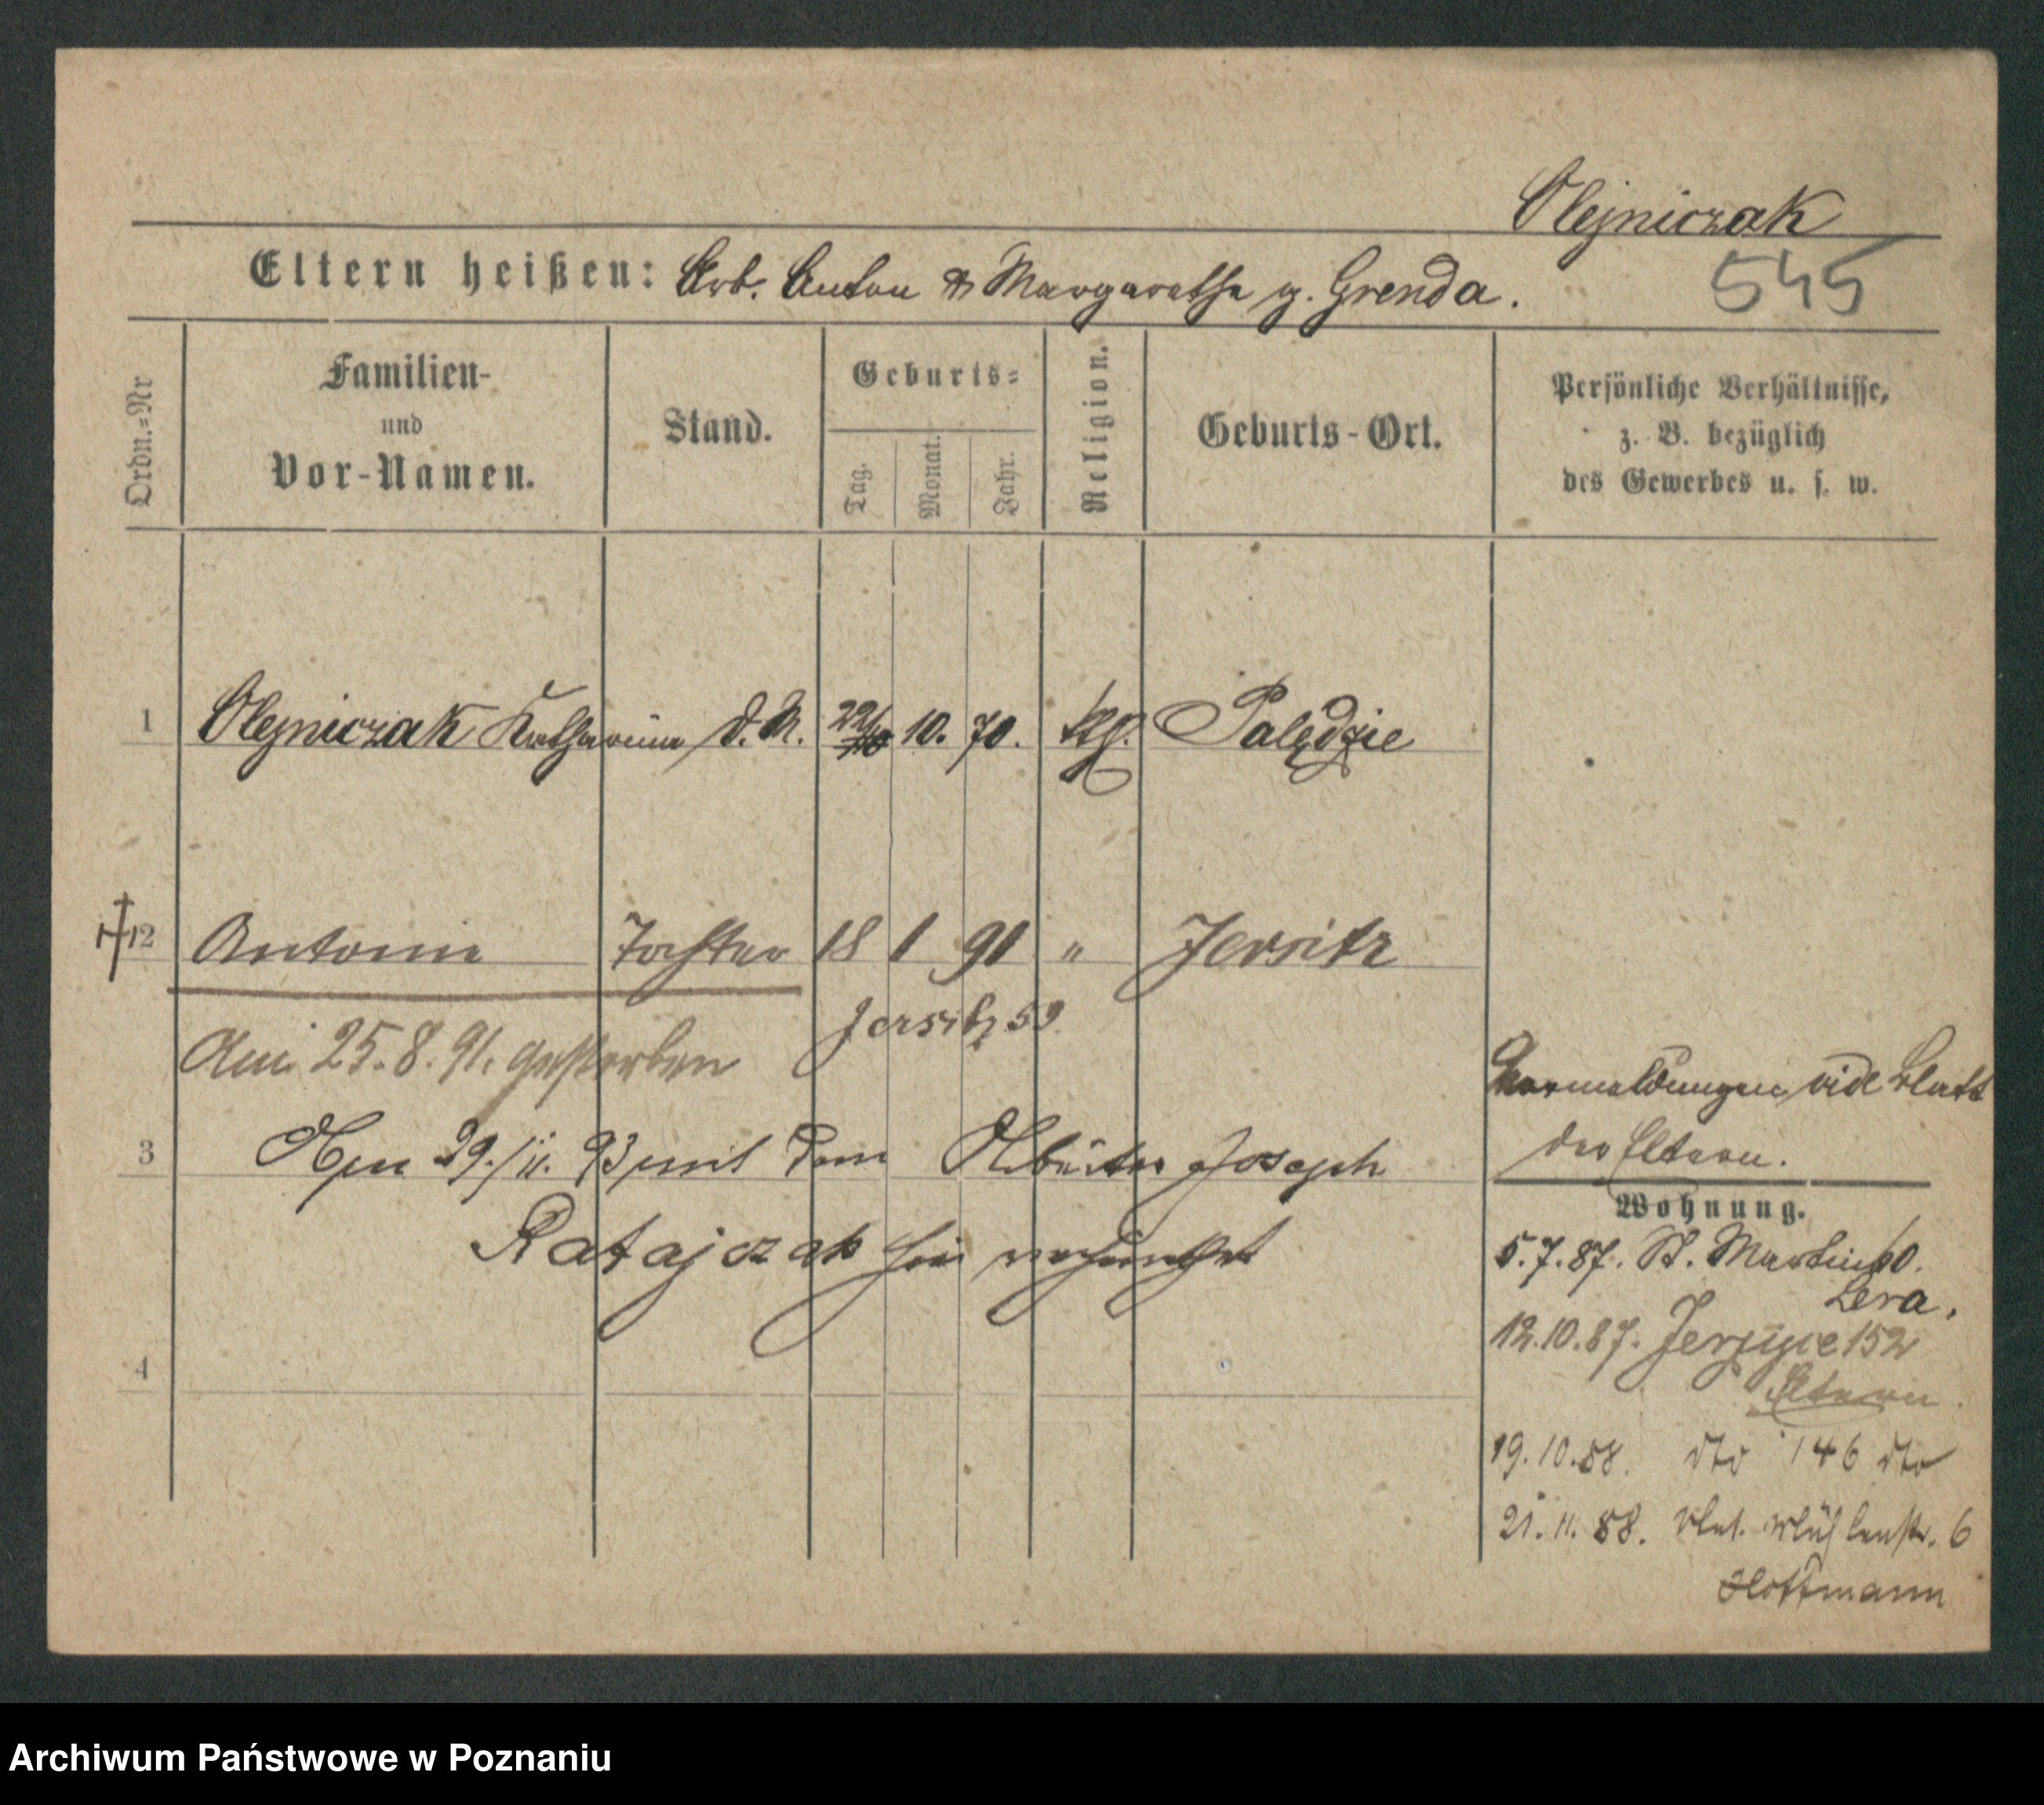 Olejniczak
Eltern heißen: Arb. Anton & Margarethe g. Grenda.
545
Ordn.-Nr
Familien-
und
Vor-Namen.
Stand.
Geburts-
Tag.
Monat.
Jahr.
Religion.
Geburts-Ort.
Persönliche Verhältnisse,
z. B. bezüglich
des Gewerbes u. s. w.
1 Olejniczak Katharina d. M. 22/ 10. 70. ktl. Palędzie
2 Antonie Tochter 18 1 91 " Jersitz
Jersitz 59
Am 25.8.91. gestorben
Vormeldungen vide Blatt
der Eltern.
3 29./11. 93 mit dem Arbeiter Joseph
Ratajczak hier verheirathet
Wohnung.
5.7.87. St. Martin 60.
Lera.
12.10.87. Jerzyce 152
Eltern
4
19.10.88. dto 146 dto
21.11.88. Mühlenstr. 6
Hoffmann
Archiwum Państwowe w Poznaniu